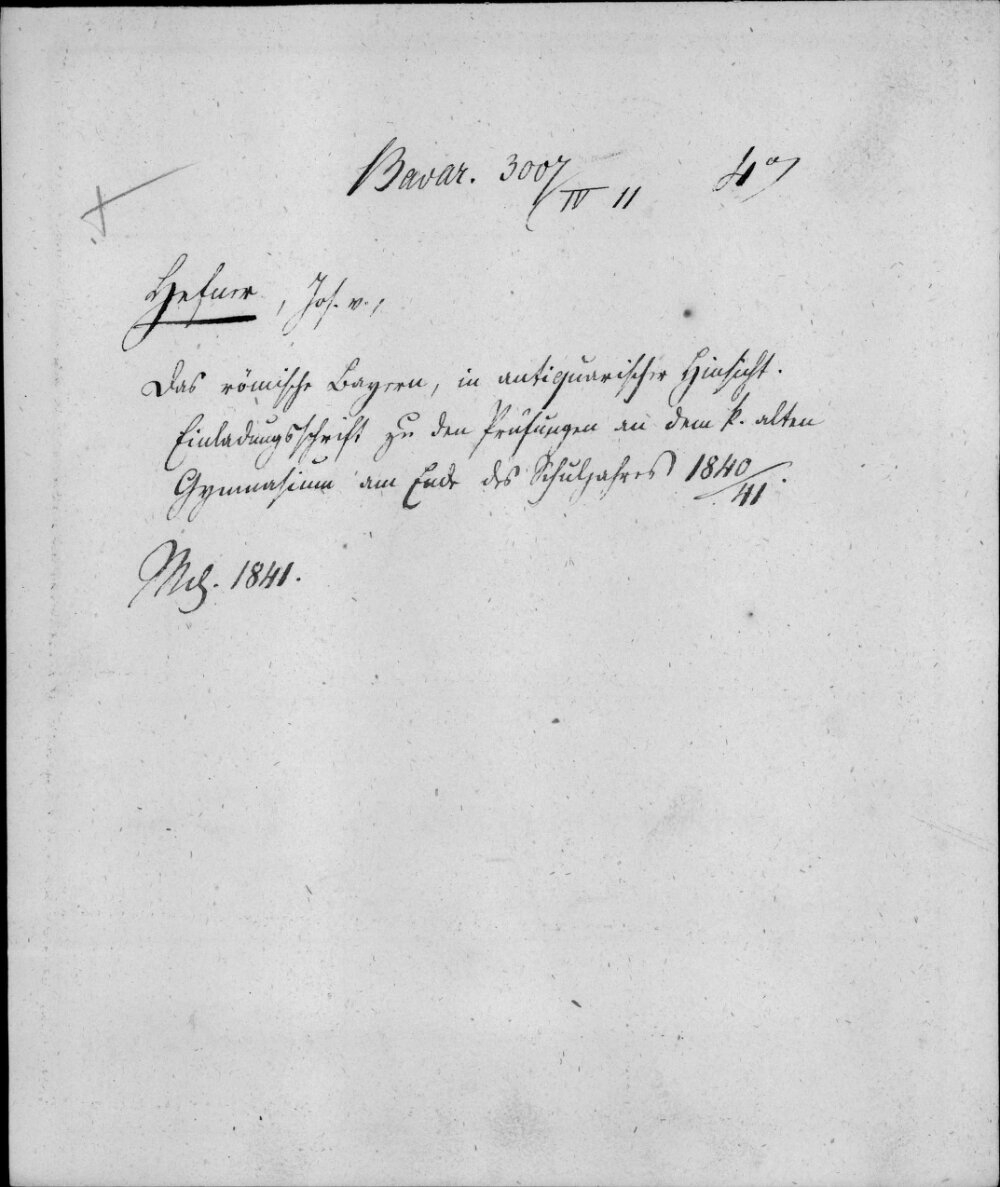 Bavar. 3007/IV 11 4°
Hefner, Jos. v.,
Das römische Bayern, in antiquarischer Hinsicht.
Einladungsschrift zu den Prüfungen an dem k. alten
Gymnasium am Ende des Schuljahres 1840/41.
Mch. 1841.